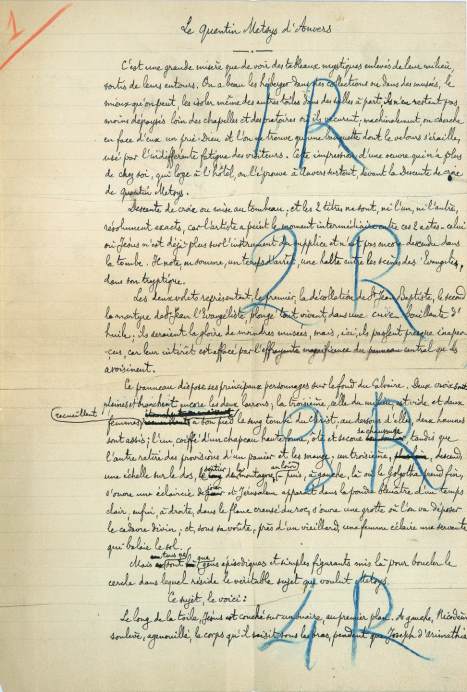 1
Le Quentin Metsys d'Anvers
C'est une grande misère que de voir des tableaux mystiques enlevés de leur milieu,
sortis de leurs entours. On a beau les héberger dans des collections ou dans des musées, le
mieux qu'on peut, les isoler même des autres toiles dans des salles à part, ils n'en restent pas
moins dépaysés loin des chapelles et des oratoires où ils vécurent; machinalement on cherche
en face d'eux un prie-Dieu et l'on ne trouve qu'une banquette dont le velours s'éraille,
usé par l'indifférente fatigue des visiteurs. Cette impression d'une oeuvre qui n'a plus
de chez soi, qui loge à l'hôtel, on l'éprouve à Anvers surtout, devant la Descente de croix
de Quentin Metsys.
Descente de croix ou mise au tombeau, et les 2 titres ne sont, ni l'un, ni l'autre,
résolument exacts, car l'artiste a peint le moment intermédiaire entre ces 2 actes - celui
où Jésus n'est déjà plus sur l'instrument du supplice et n'est pas encore descendu dans
la tombe. Il note, en somme, un temps d'arrêt, une halte entre les scènes des Evangiles,
dans son tryptique.
Les deux volets représentent, le premier, la décollation de St Jean Baptiste, le second
le martyre de St Jean l'Evangéliste, plongé tout vivant, dans une cuive bouillante d'
huile; ils seraient la gloire de moindres musées, mais, ici, ils passent presque inaper-
çus, car leur intérêt est effacé par l'effrayante magnificence du panneau central qu'ils
avoisinent.
Ce panneau dispose ses principaux personnages sur le fond du Calvaire. Deux croix sont
pleines et branchent encore les deux larrons; la troisième, celle du milieu est vide et deux
recueillent
femmes à son pied le sang tombé du Christ; au dessous d'elle, deux hommes
sont assis; l'un, coiffé d'un chapeau haute forme, ôte et secoue sa chaussure, tandis que
l'autre retire des provisions d'un panier et les mange; un troisième, descend,
une échelle sur le dos, le sentier de la montagne; puis, à gauche, là où le Golgotha prend fin,
au loin
s'ouvre une éclaircie de jour et Jérusalem apparaît dans la poudre bleuâtre d'un temps
clair; enfin, à droite, dans le flanc creusé du roc, s'ouvre une grotte où l'on va déposer
le cadavre divin; et, sous sa voûte, près d'un vieillard, une femme éclaire une servante
qui balaie le sol.
Mais tous ne sont que gens épisodiques et simples figurants mis là pour boucler le
cercle dans lequel réside le véritable sujet que voulut Metsys.
Ce sujet, le voici:
Le long de la toile, Jésus est couché sur un suaire, au premier plan. A gauche, Nicodème
soulève, agenouillé, le corps qu'il saisit sous les bras, pendant que Joseph d'Arimathie
1 R
2 R
3 R
4 R